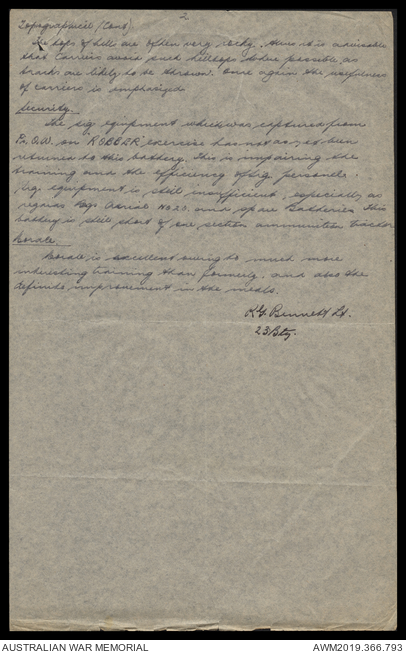 2
Topographical (Cont)
The tops of hills are often very rocky. Hence it is advisable
that Carriers avoid such hilltops where possible, as
tracks are likely to be thrown. Once again the usefulness
of carriers is emphasized
Security.
The sig equipment which was captured from
Ps.O.W. on "ROBBER" exercise has not as yet been
returned to this battery. This is impairing the
training and the efficiency of sig personnel.
Sig equipment is still insufficient, especially as
regards Aerial No 20. and spare Batteries. This
battery is still short of one section ammunition tractor
Morale.
Morale is excellent owing to much more
interesting training than formerly, and also the
definite improvement in the meals.
K G Bennett Lt.
23 Bty.
AUSTRALIAN WAR MEMORIAL
AWM2019.366.793